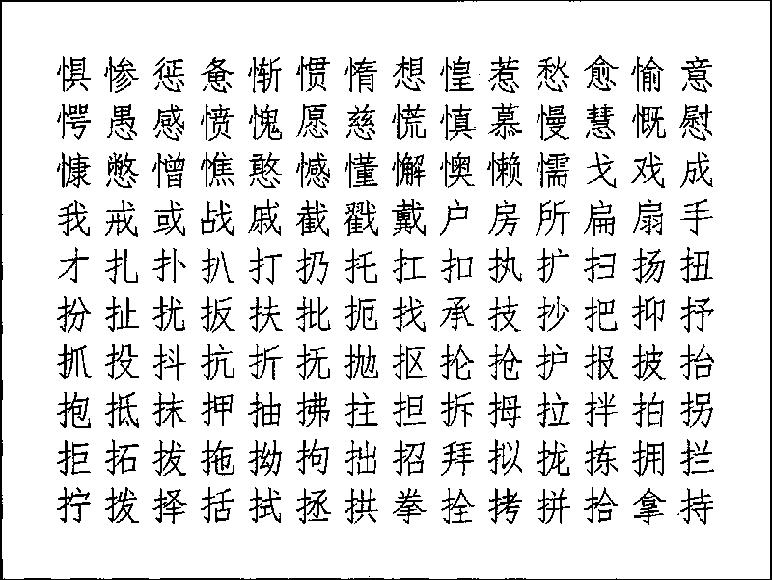 惧惨惩惫惭惯惰想惶惹愁愈愉意
愕愚感愤愧愿慈慌慎慕慢慧慨慰
慷憋憎憔憨憾懂懈懊懒懦戈戏成
我戒或战戚截戳戴户房所扁扇手
才扎扑扒打扔托扛扣执扩扫扬扭
扮扯扰扳扶批扼找承技抄把抑抒
抓投抖抗折抚抛抠抡抢护报披抬
抱抵抹押抽拂拄担拆拇拉拌拍拐
拒拓拔拖拗拘拙招拜拟拢拣拥拦
拧拨择括拭拯拱拳拴拷拼拾拿持